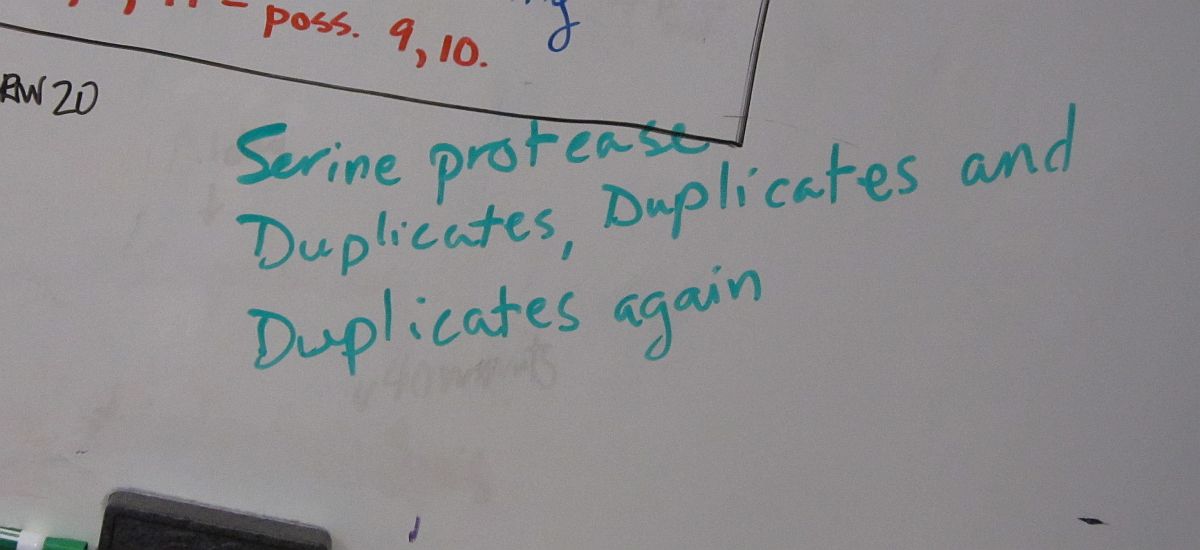 poss. 9, 10.
20
Serine protease
Duplicates, Duplicates and
Duplicates again